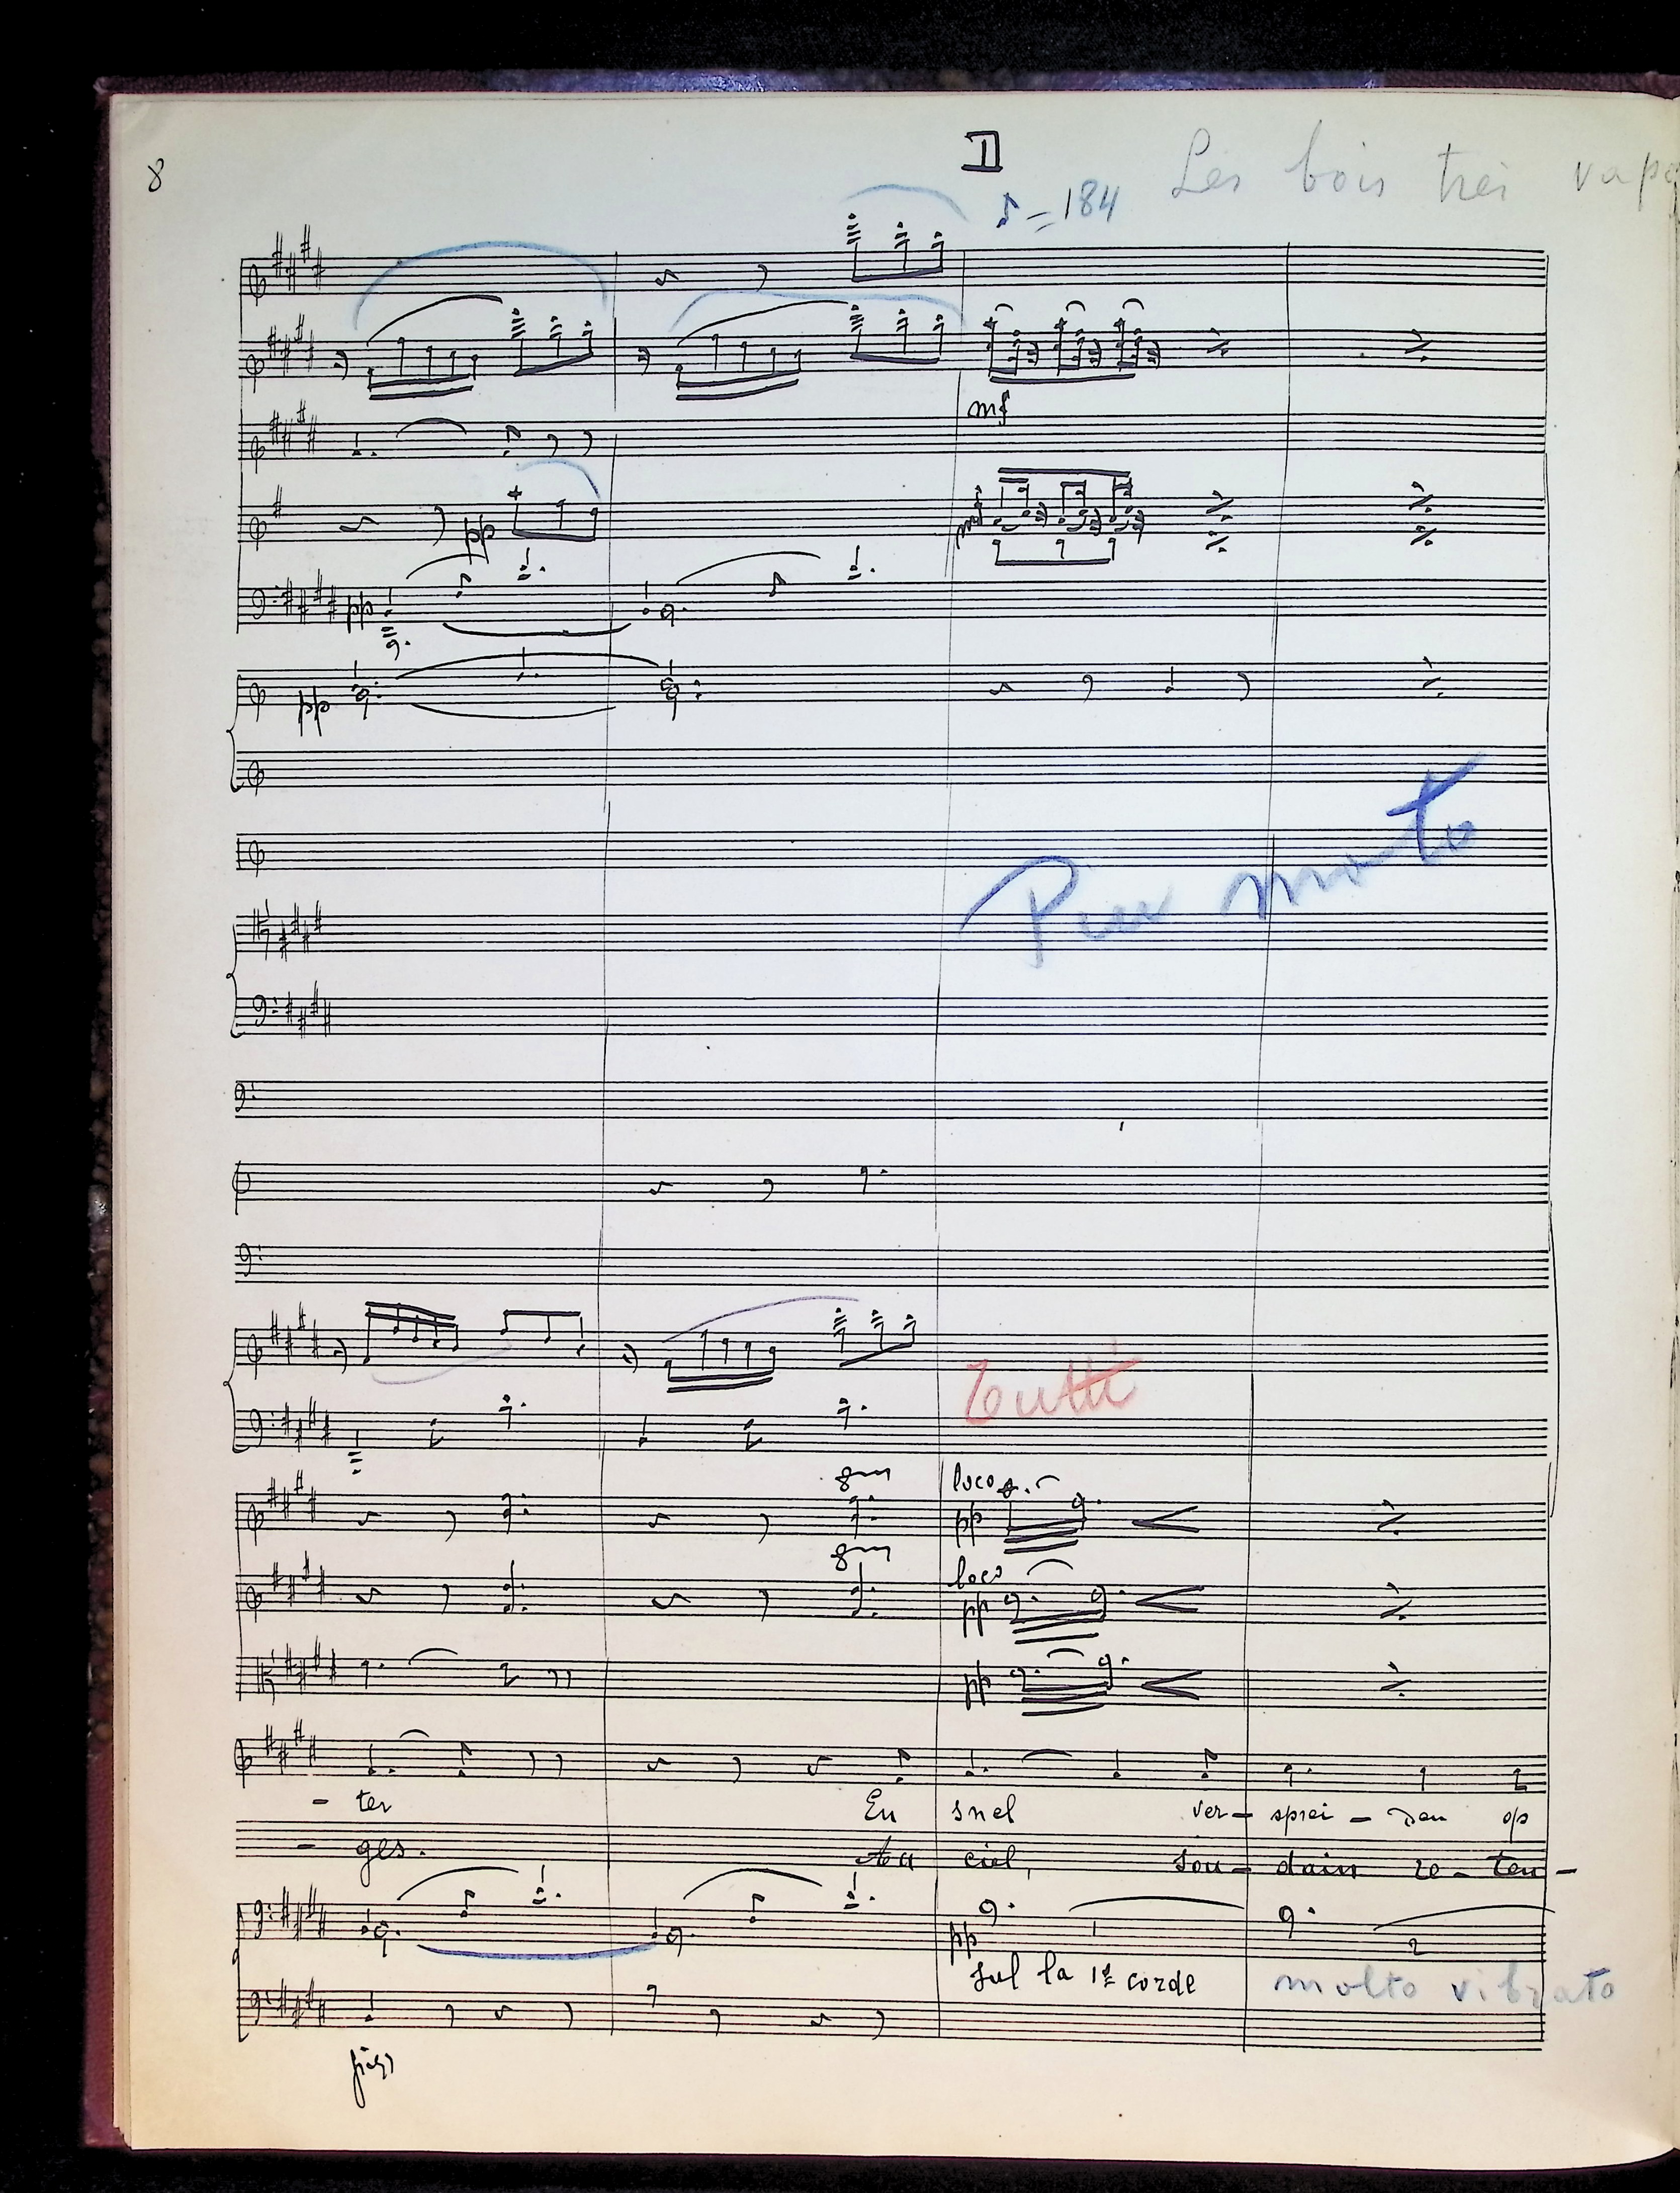 8
II
♪ = 184 Les bois très
mf
pp
pp
pp
Piu moto
Tutti
8
loco
pp
8
loco
pp
pp
- ter En snel ver- sprei - den op
- ges. Au ciel, sou- dain re- ten-
pp
sul la 1e corde molto vibrato